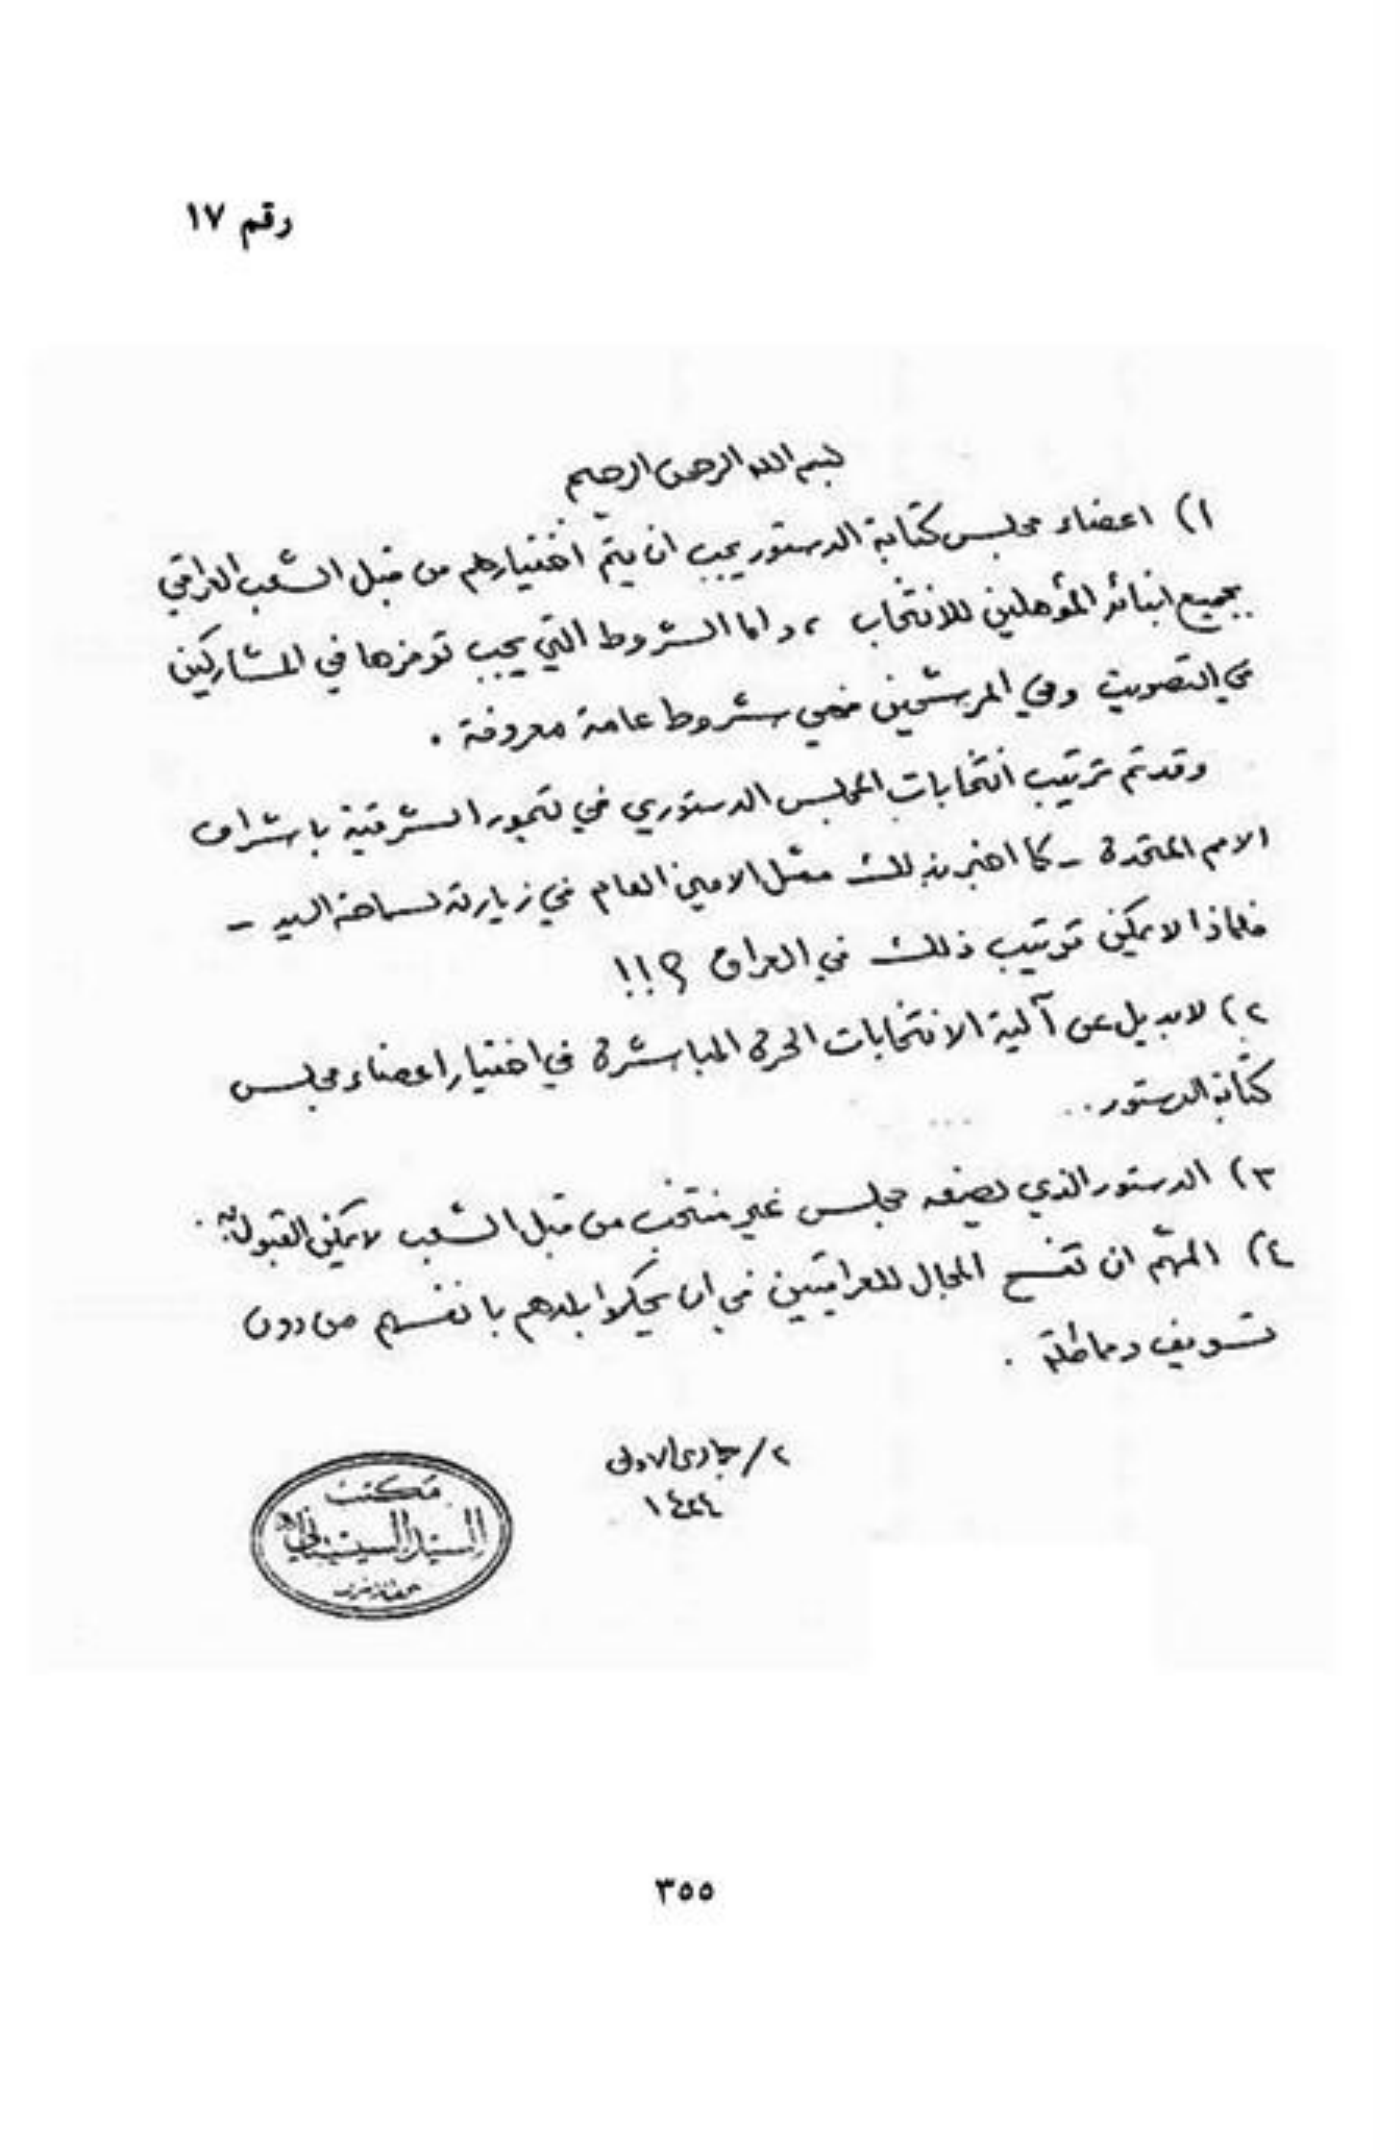 رقم ١٧
بسم الله الرحمن الرحيم
١) اعضاء مجلس كتابة الدستور يجب ان يتمّ اختيارهم من قبل الشعب العراقي
بجميع ابنائه المؤهلين للانتخاب ، واما الشروط التي يجب توفرها في المشاركين
في التصويت وفي المرشحين فهي شروط عامة معروفة .
وقد تم ترتيب انتخابات المجلس الدستوري في تيمور الشرقية باشراف
الامم المتحدة - كما اخبر بذلك ممثل الامين العام في زيارته لسماحة السيد -
فلماذا لا يمكن ترتيب ذلك في العراق ؟!!
٢) لا بديل عن آلية الانتخابات الحرة المباشرة في اختيار اعضاء مجلس
كتابة الدستور ..
٣) الدستور الذي يضعه مجلس غير منتخب من قبل الشعب لا يمكن القبول به .
٤) المهمّ ان تفسح المجال للعراقيين في ان يحكموا بلدهم بانفسهم من دون
تسويف ومماطلة .
٢/ جمادى الاولى
١٤٢٤
مكتب
السيد السيستاني
النجف الاشرف
٣٥٥